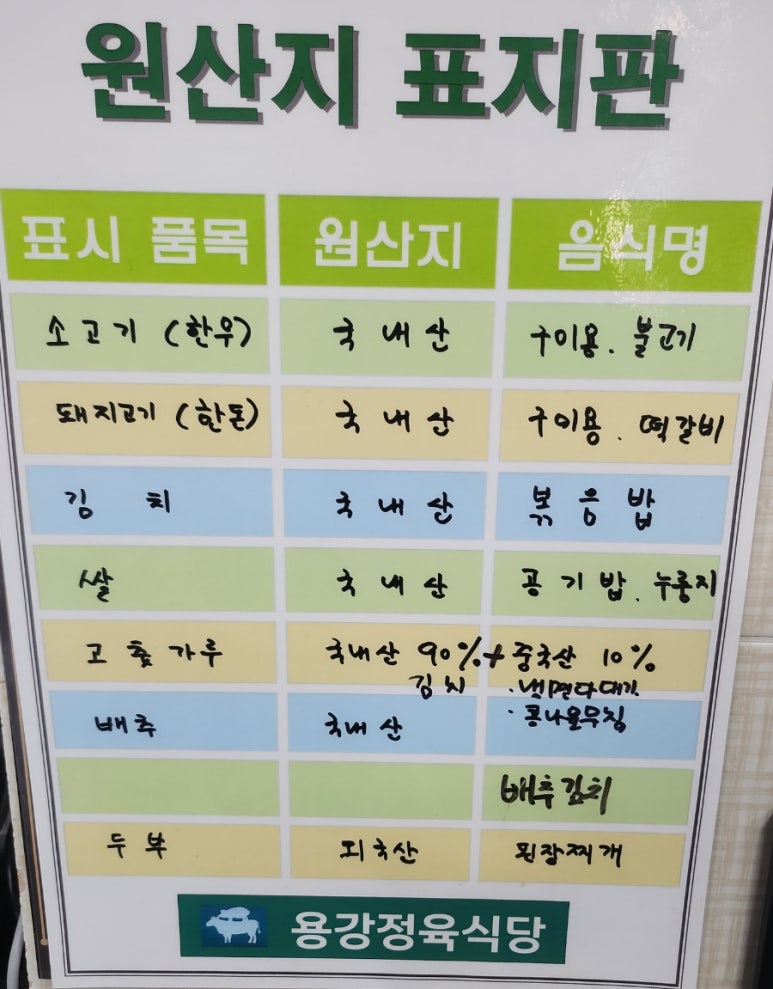 원산지 표지판
표시 품목 원산지 음식명
소고기 (한우) 국내산 구이용. 불고기
돼지고기 (한돈) 국내산 구이용. 떡갈비
김 치 국내산 볶음밥
쌀 국내산 공기밥. 누룽지
고춧가루 국내산 90% + 중국산 10%
김치 · 냉면다대기
배추 국내산 · 콩나물무침
배추김치
두부 외국산 된장찌개
용강정육식당